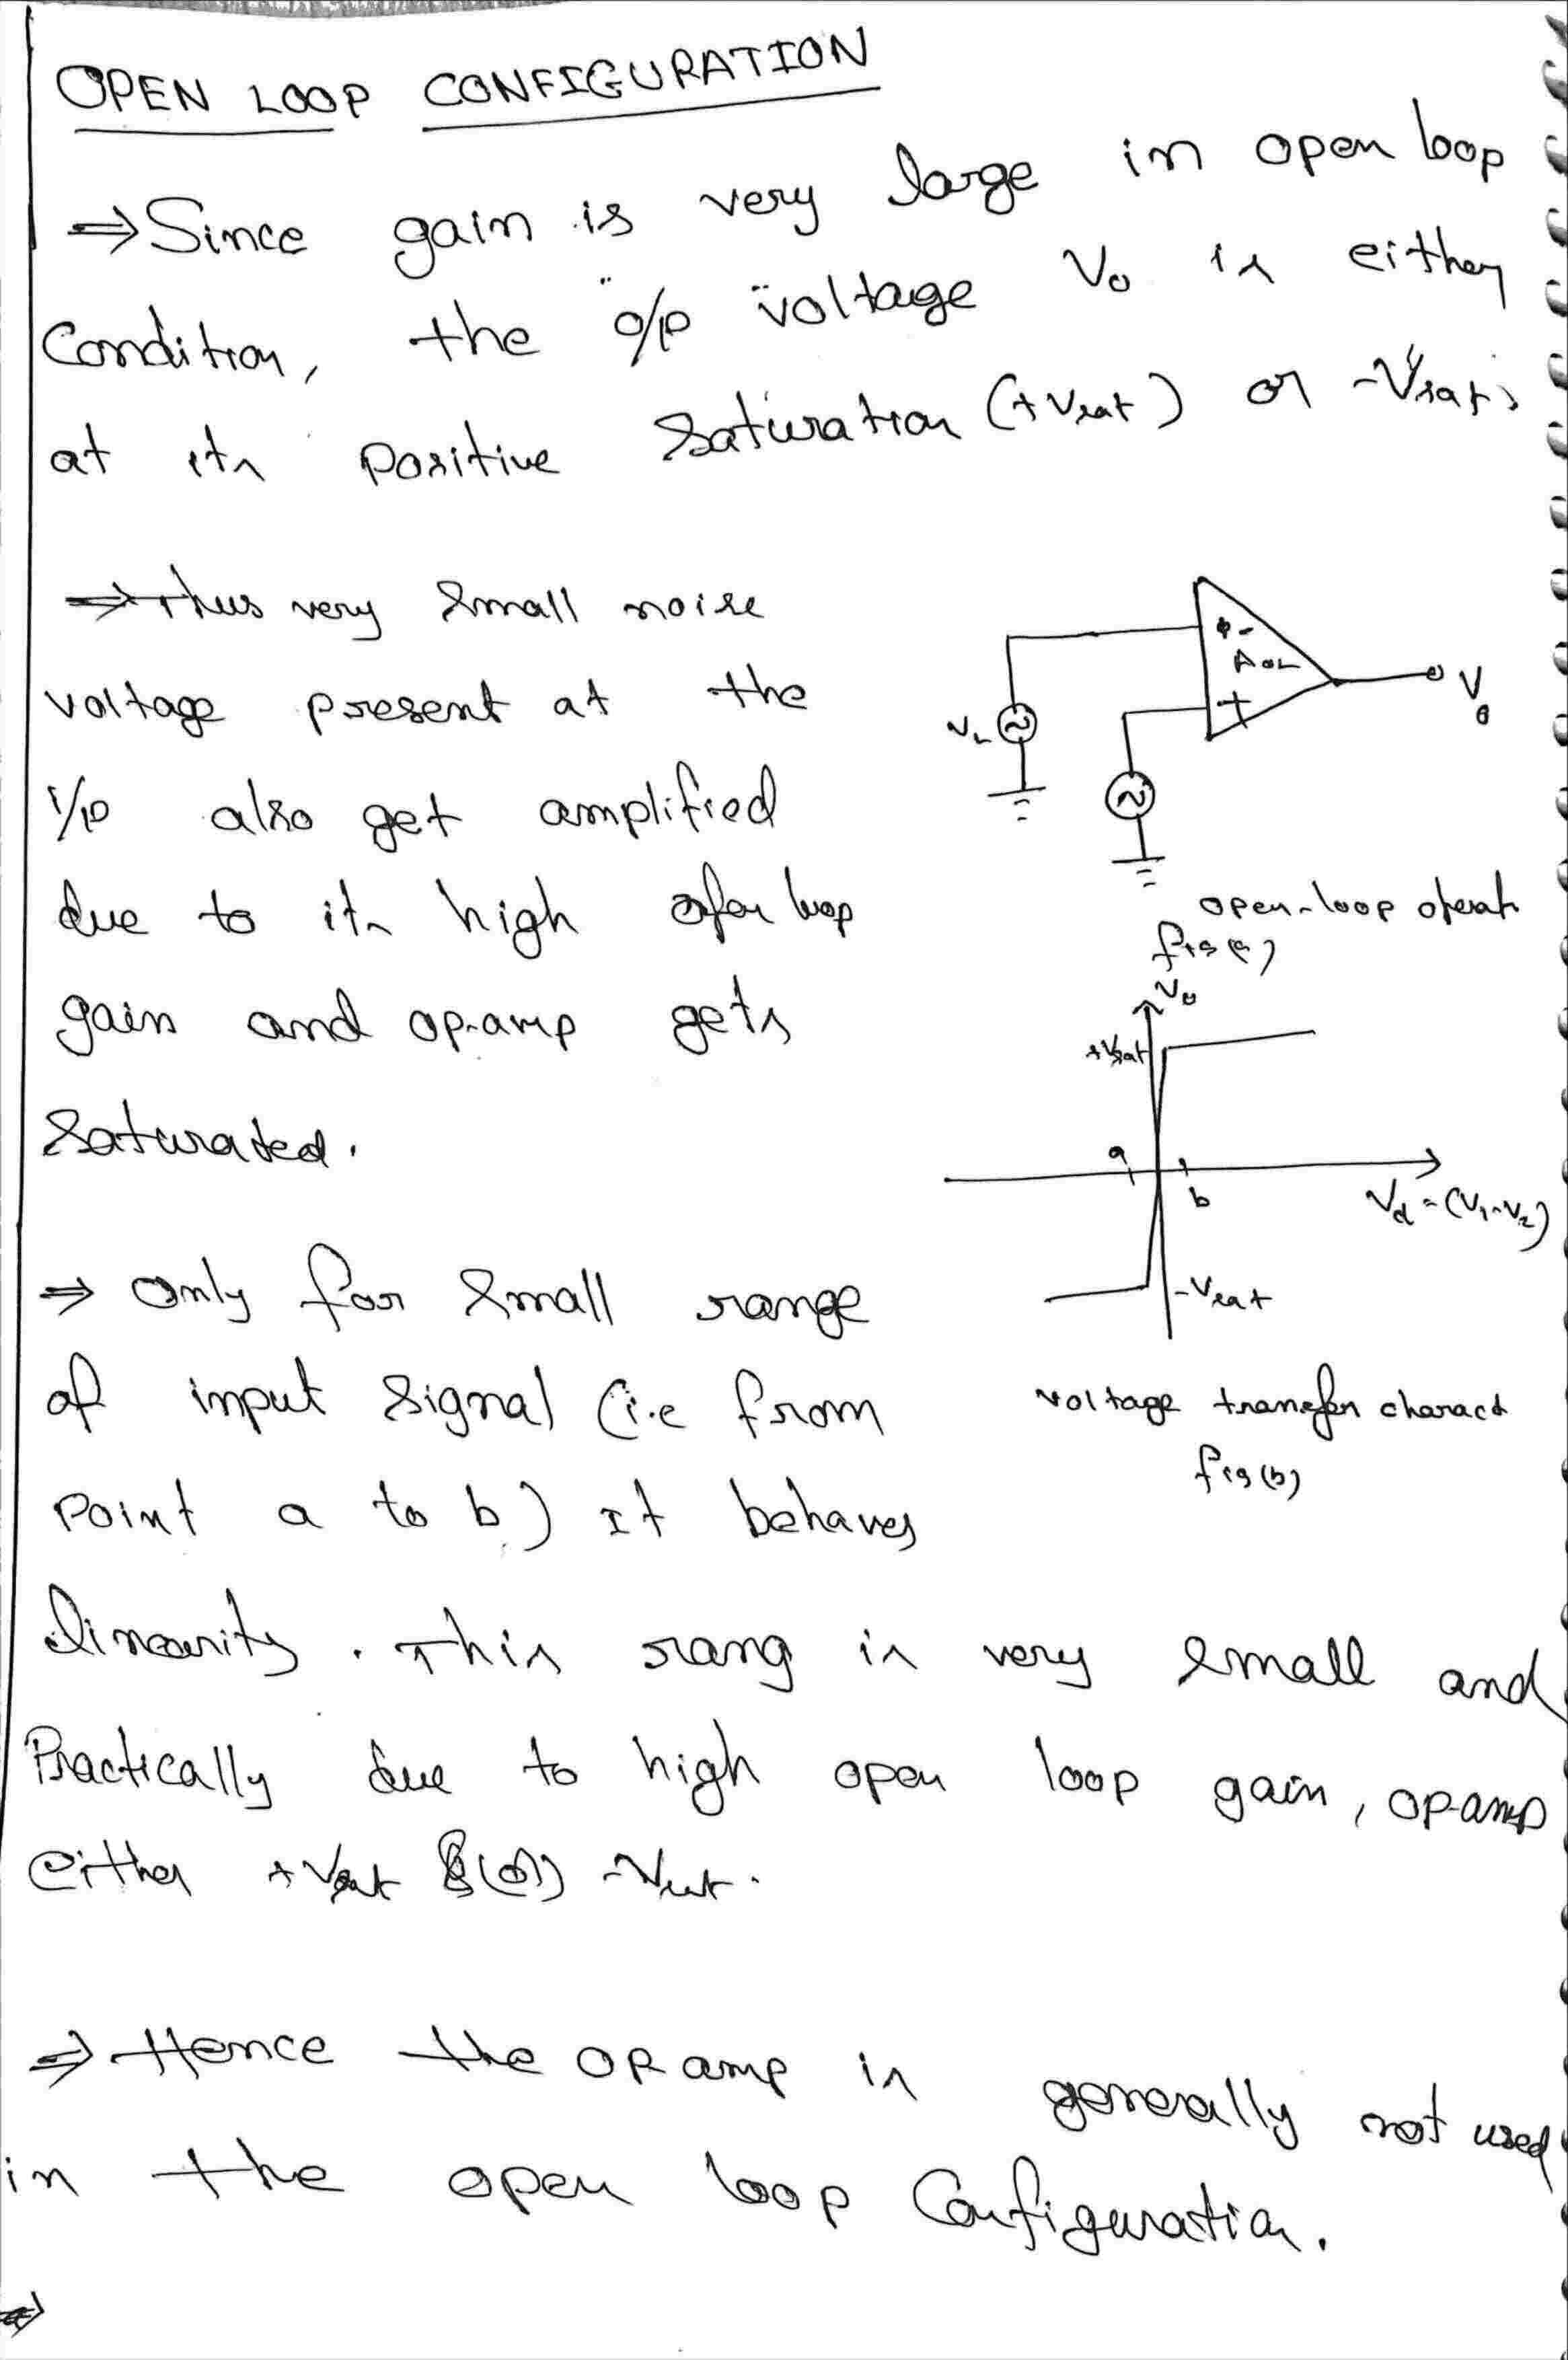 OPEN LOOP CONFIGURATION
⇒ Since gain is very large in open loop
Condition, the o/p voltage Vo is either
at its positive saturation (+Vsat) or -Vsat.
⇒ Thus very small noise
voltage present at the
i/p also get amplified
due to its high open loop
gain and op-amp gets
saturated.
⇒ Only for small range
of input signal (i.e from
point a to b) It behaves
linearity. This rang is very small and
Practically due to high open loop gain, op-amp
either +Vsat (or) -Vsat.
⇒ Hence the OP amp is generally not used
in the open loop Configuration.
⇒
-
AOL
+
Vo
V2
open-loop operat
fig(a)
Vo
+Vsat
a
b
Vd = (V1-V2)
-Vsat
voltage transfer charact
fig(b)